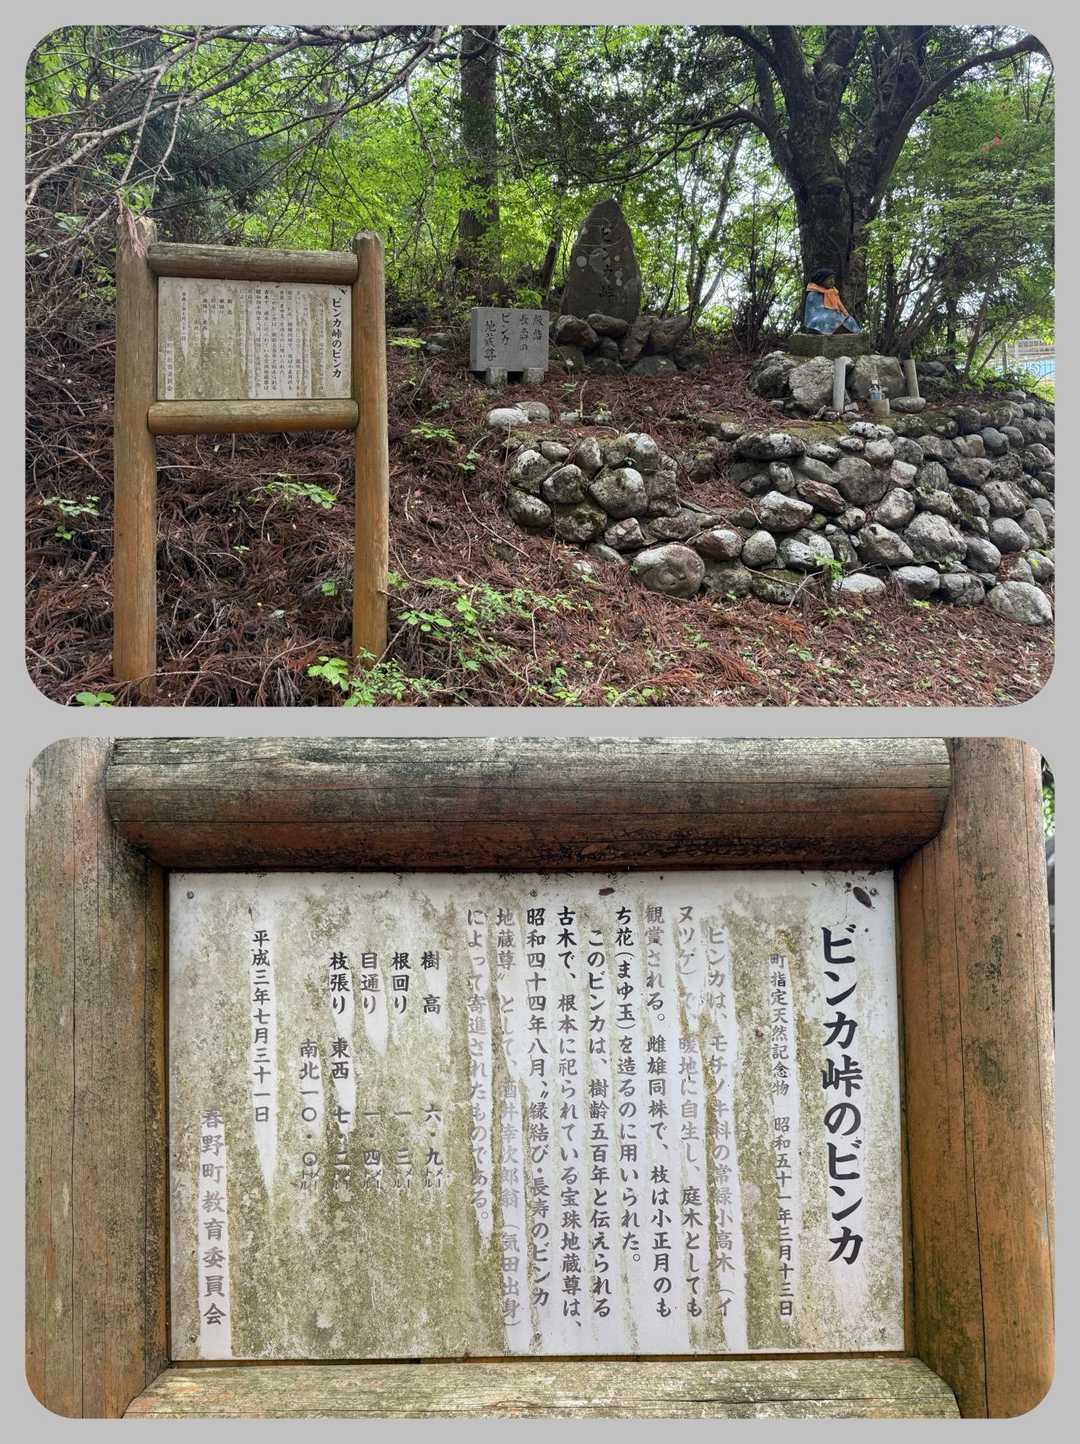 ビンカ峠のビンカ
縁結
長寿の
ビンカ
地蔵尊
ビンカ峠のビンカ
町指定天然記念物 昭和五十一年三月十三日
ビンカは、モチノキ科の常緑小高木（イ
ヌツゲ）で、暖地に自生し、庭木としても
観賞される。雌雄同株で、枝は小正月のも
ち花（まゆ玉）を造るのに用いられた。
このビンカは、樹齢五百年と伝えられる
古木で、根本に祀られている宝珠地蔵尊は、
昭和四十四年八月、〝縁結び・長寿のビンカ
地蔵尊〟として、酒井幸次郎翁（気田出身）
によって寄進されたものである。
樹高 六・九メートル
根回り 一・三メートル
目通り 一・四メートル
枝張り 東西 七・二メートル
南北一〇・〇メートル
平成三年七月三十一日
春野町教育委員会